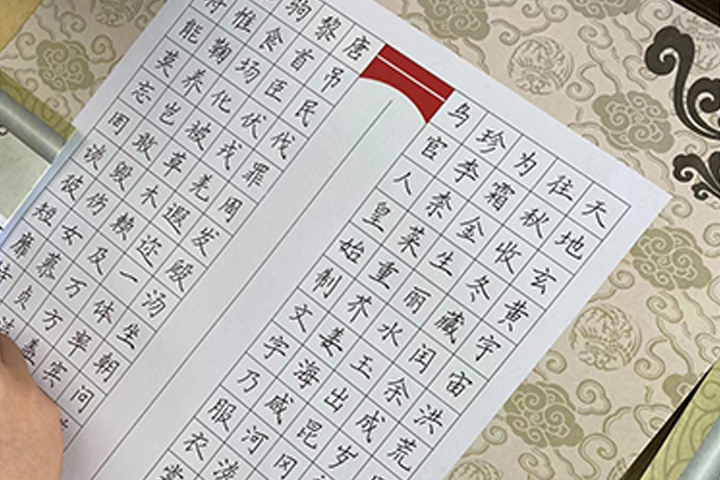 天地玄黄宇宙洪荒
往秋收冬藏闰余成岁
为霜金生丽水玉出昆冈
珍李柰菜重芥姜海咸河淡
鸟官人皇始制文字乃服衣裳
唐吊民伐罪周发殷汤坐朝问
黎首臣伏戎羌遐迩一体率宾
驹食场化被草木赖及万方盖
惟鞠养岂敢毁伤女慕贞
能莫忘罔谈彼短靡